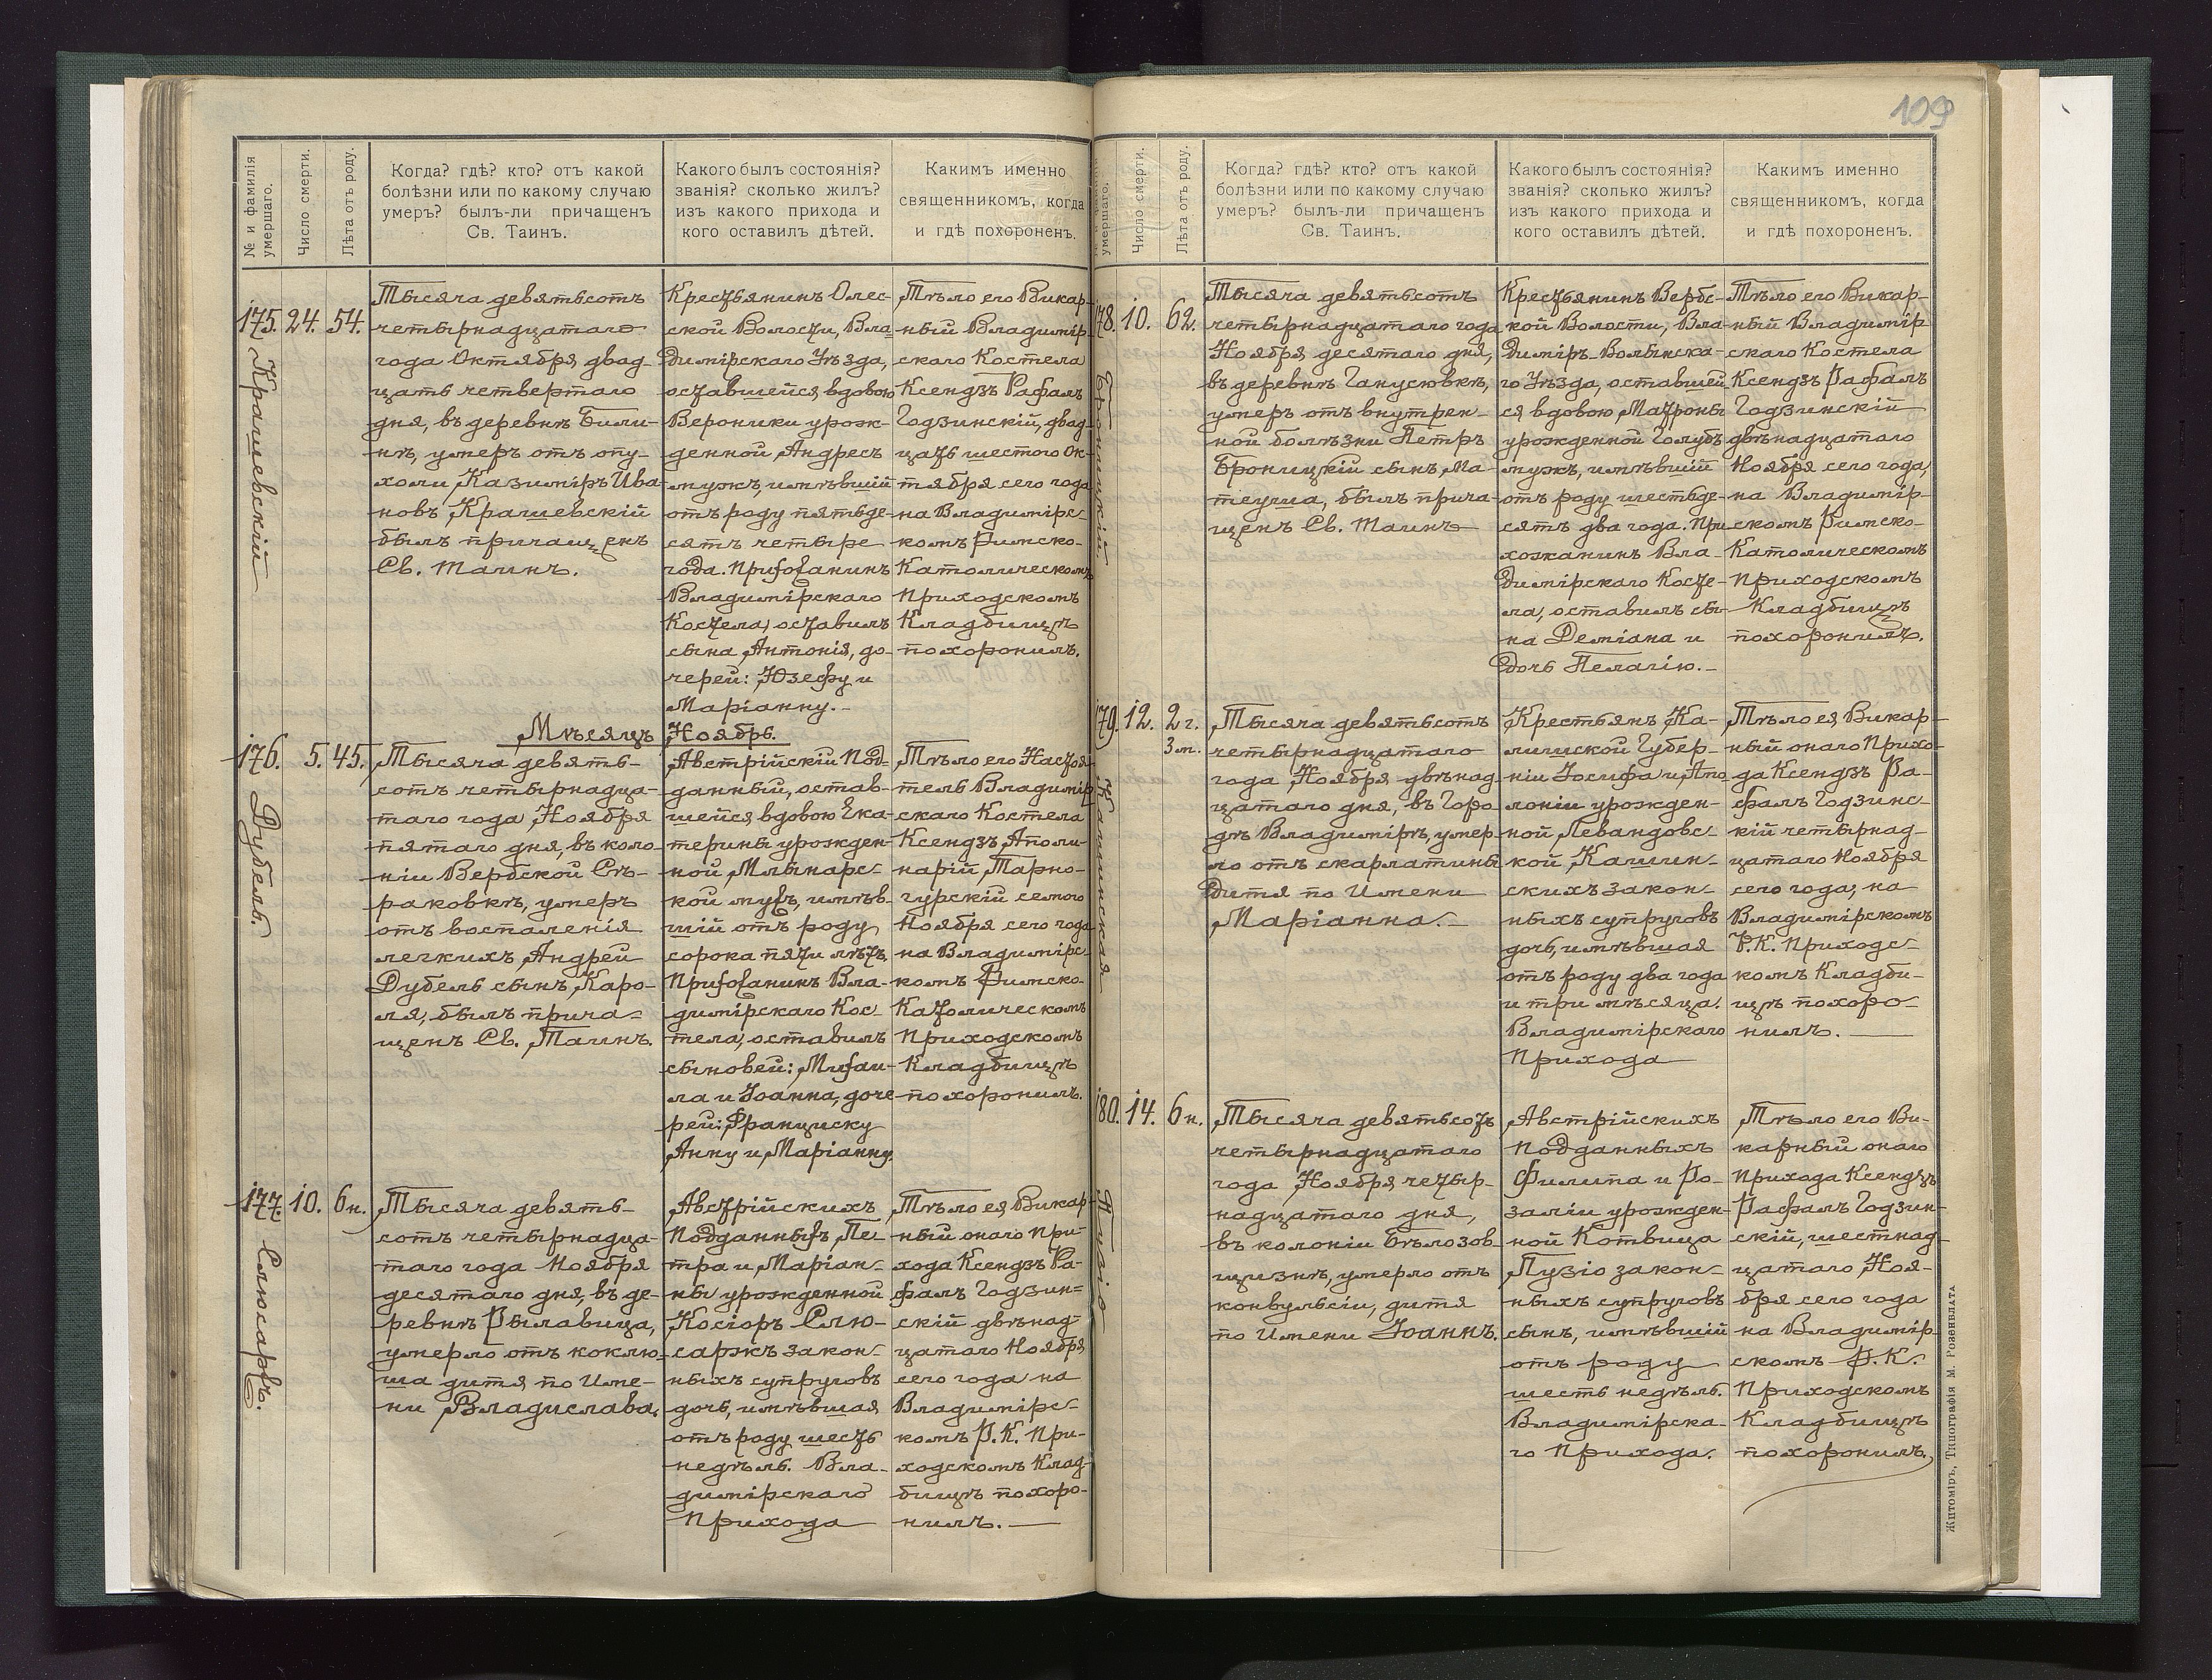 109
№ и фамилія умершаго.
Число смерти.
Лѣта отъ роду.
Когда? гдѣ? кто? отъ какой
болѣзни или по какому случаю
умеръ? былъ-ли причащенъ
Св. Таинъ.
Какого былъ состоянія?
званія? сколько жилъ?
изъ какого прихода и
кого оставилъ дѣтей.
Какимъ именно
священникомъ, когда
и гдѣ похороненъ.
175. Крашевскій
24.
54.
Тысяча девятьсотъ
четырнадцатаго
года Октября двад-
цать четвертаго
дня, въ деревнѣ Били-
нѣ, умеръ отъ опу-
холи Казиміръ Ива-
новъ Крашевскій
былъ причащенъ
Св. Таинъ.
Крестьянинъ Олес-
ской Волости, Вла-
димірскаго Уѣзда,
оставшейся вдовою
Вероники урож-
денной Андресъ
мужъ, имѣвшій
отъ роду пятьде-
сятъ четыре
года. Прихожанинъ
Владимірскаго
Костела, оставилъ
сына Антонія, до-
черей: Юзефу и
Маріанну.-
Тѣло его Викар-
ный Владимір-
скаго Костела
Ксендзъ Рафалъ
Годзинскій, двад-
цать шестого Ок-
тября сего года
на Владимірс-
комъ Римско-
Католическомъ
Приходскомъ
Кладбищѣ
похоронилъ.
Мѣсяцъ Ноябрь.
176. Дубель.
5.
45.
Тысяча девять-
сотъ четырнадца-
таго года Ноября
пятаго дня, въ коло-
ніи Вербской Съ-
раковкѣ, умеръ
отъ воспаленія
легкихъ Андрей
Дубель сынъ Каро-
ля, былъ прича-
щенъ Св. Таинъ.
Австрійскій Под-
данный, остав-
шейся вдовою Ека-
терины урожден-
ной Млынарс-
кой мужъ, имѣв-
шій отъ роду
сорока пяти лѣтъ.
Прихожанинъ Вла-
димірскаго Кос-
тела, оставилъ
сыновей: Михаи-
ла и Іоанна, доче-
рей: Франциску
Анну и Маріанну.
Тѣло его Настоя-
тель Владимір-
скаго Костела
Ксендзъ Аполи-
нарій Тарно-
гурскій семого
Ноября сего года
на Владимірс-
комъ Римско-
Католическомъ
Приходскомъ
Кладбищѣ
похоронилъ.
177. Слюсаръ.
10.
6 н.
Тысяча девять-
сотъ четырнадца-
таго года Ноября
десятаго дня, въ де-
ревнѣ Рылавица,
умерло отъ коклю-
ша дитя по Име-
ни Владислава.
Австрійскихъ
Подданныхъ Пе-
тра и Маріан-
ны урожденной
Косіоръ Слю-
саржъ закон-
ныхъ супруговъ
дочь, имѣвшая
отъ роду шесть
недѣль. Вла-
димірскаго
Прихода
Тѣло ея Викар-
ный онаго При-
хода Ксендзъ Ра-
фалъ Годзин-
скій двѣнад-
цатаго Ноября
сего года на
Владимірс-
комъ Р.К. При-
ходскомъ Клад-
бищѣ похоро-
нилъ.—
№ и фамилія умершаго.
Число смерти.
Лѣта отъ роду.
Когда? гдѣ? кто? отъ какой
болѣзни или по какому случаю
умеръ? былъ-ли причащенъ
Св. Таинъ.
Какого былъ состоянія?
званія? сколько жилъ?
изъ какого прихода и
кого оставилъ дѣтей.
Какимъ именно
священникомъ, когда
и гдѣ похороненъ.
178. Броницкій
10.
62.
Тысяча девятьсотъ
четырнадцатаго года
Ноября десятаго дня,
въ деревнѣ Ганусювкѣ,
умеръ отъ внутрен-
ной болѣзни Петръ
Броницкій сынъ Ма-
теуша, былъ прича-
щенъ Св. Таинъ
Крестьянинъ Вербс-
кой Волости, Вла-
диміръ-Волынска-
го Уѣзда, оставшей-
ся вдовою Матроны
урожденной Голубъ
мужъ, имѣвшій
отъ роду шестьде-
сятъ два года. При-
хожанинъ Вла-
димірскаго Косте-
ла, оставилъ сы-
на Деміана и
дочь Пелагію.-
Тѣло его Викар-
ный Владимір-
скаго Костела
Ксендзъ Рафалъ
Годзинскій
двѣнадцатаго
Ноября сего года,
на Владимір-
скомъ Римско-
Католическомъ
Приходскомъ
Кладбищѣ
похоронилъ.
179. Кашинская
12.
2 г.
3 м.
Тысяча девятьсотъ
четырнадцатаго
года Ноября двѣнад-
цатаго дня, въ Горо-
дѣ Владимірѣ, умер-
ло отъ скарлатины
дитя по Имени
Маріанна.-
Крестьянъ Ка-
лишской Губер-
ніи Іосифа и Апо-
лоніи урожден-
ной Левандовс-
кой Кашин-
скихъ закон-
ныхъ супруговъ
дочь, имѣвшая
отъ роду два года
и три мѣсяца.
Владимірскаго
Прихода
Тѣло ея Викар-
ный онаго Прихо-
да Ксендзъ Ра-
фалъ Годзинс-
кій четырнад-
цатаго Ноября
сего года, на
Владимірскомъ
Р.К. Приходс-
комъ Кладби-
щѣ похоро-
нилъ.—
180. Пузіо
14.
6 н.
Тысяча девятьсотъ
четырнадцатаго
года Ноября четыр-
надцатаго дня,
въ колоніи Бѣлозов-
щизнѣ, умерло отъ
конвульсіи, дитя
по Имени Іоаннъ.
Австрійскихъ
Подданныхъ
Филипа и Ро-
заліи урожден-
ной Котвица
Пузіо закон-
ныхъ супруговъ
сынъ, имѣвшій
отъ роду
шесть недѣль.
Владимірска-
го Прихода.
Тѣло его Ви-
карный онаго
Прихода Ксендзъ
Рафалъ Годзин-
скій, шестнад-
цатаго Ноя-
бря сего года
на Владимір-
скомъ Р.К.
Приходскомъ
Кладбищѣ
похоронилъ.
Житоміръ, Типографія М. Розенблата